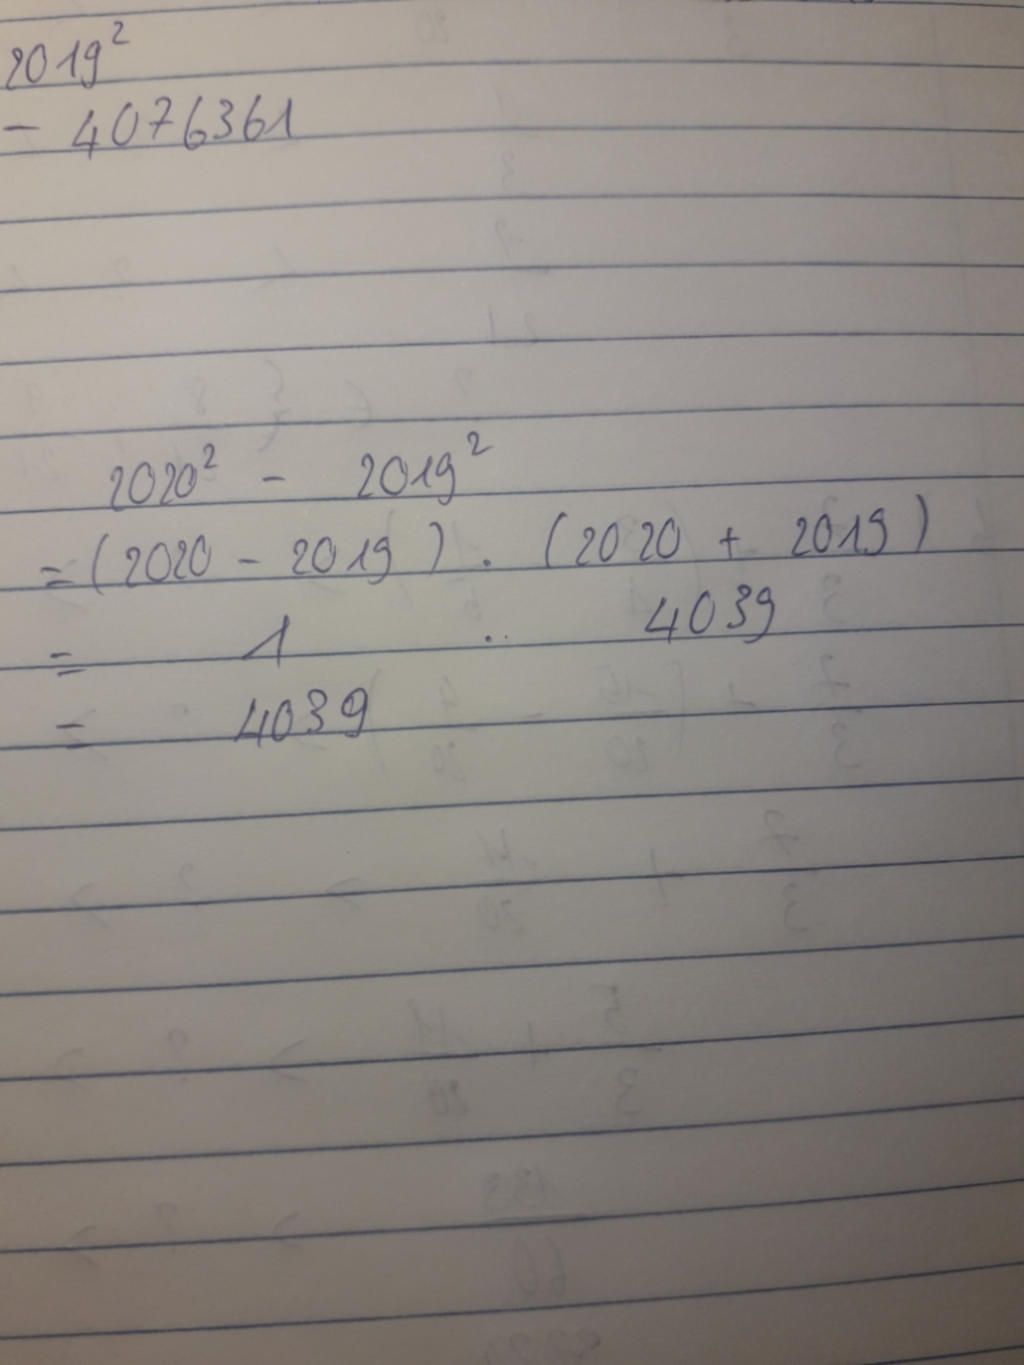 2019²
- 4076361
2020² - 2019²
= (2020 - 2019) . (2020 + 2019)
= 1 .. 4039
= 4039